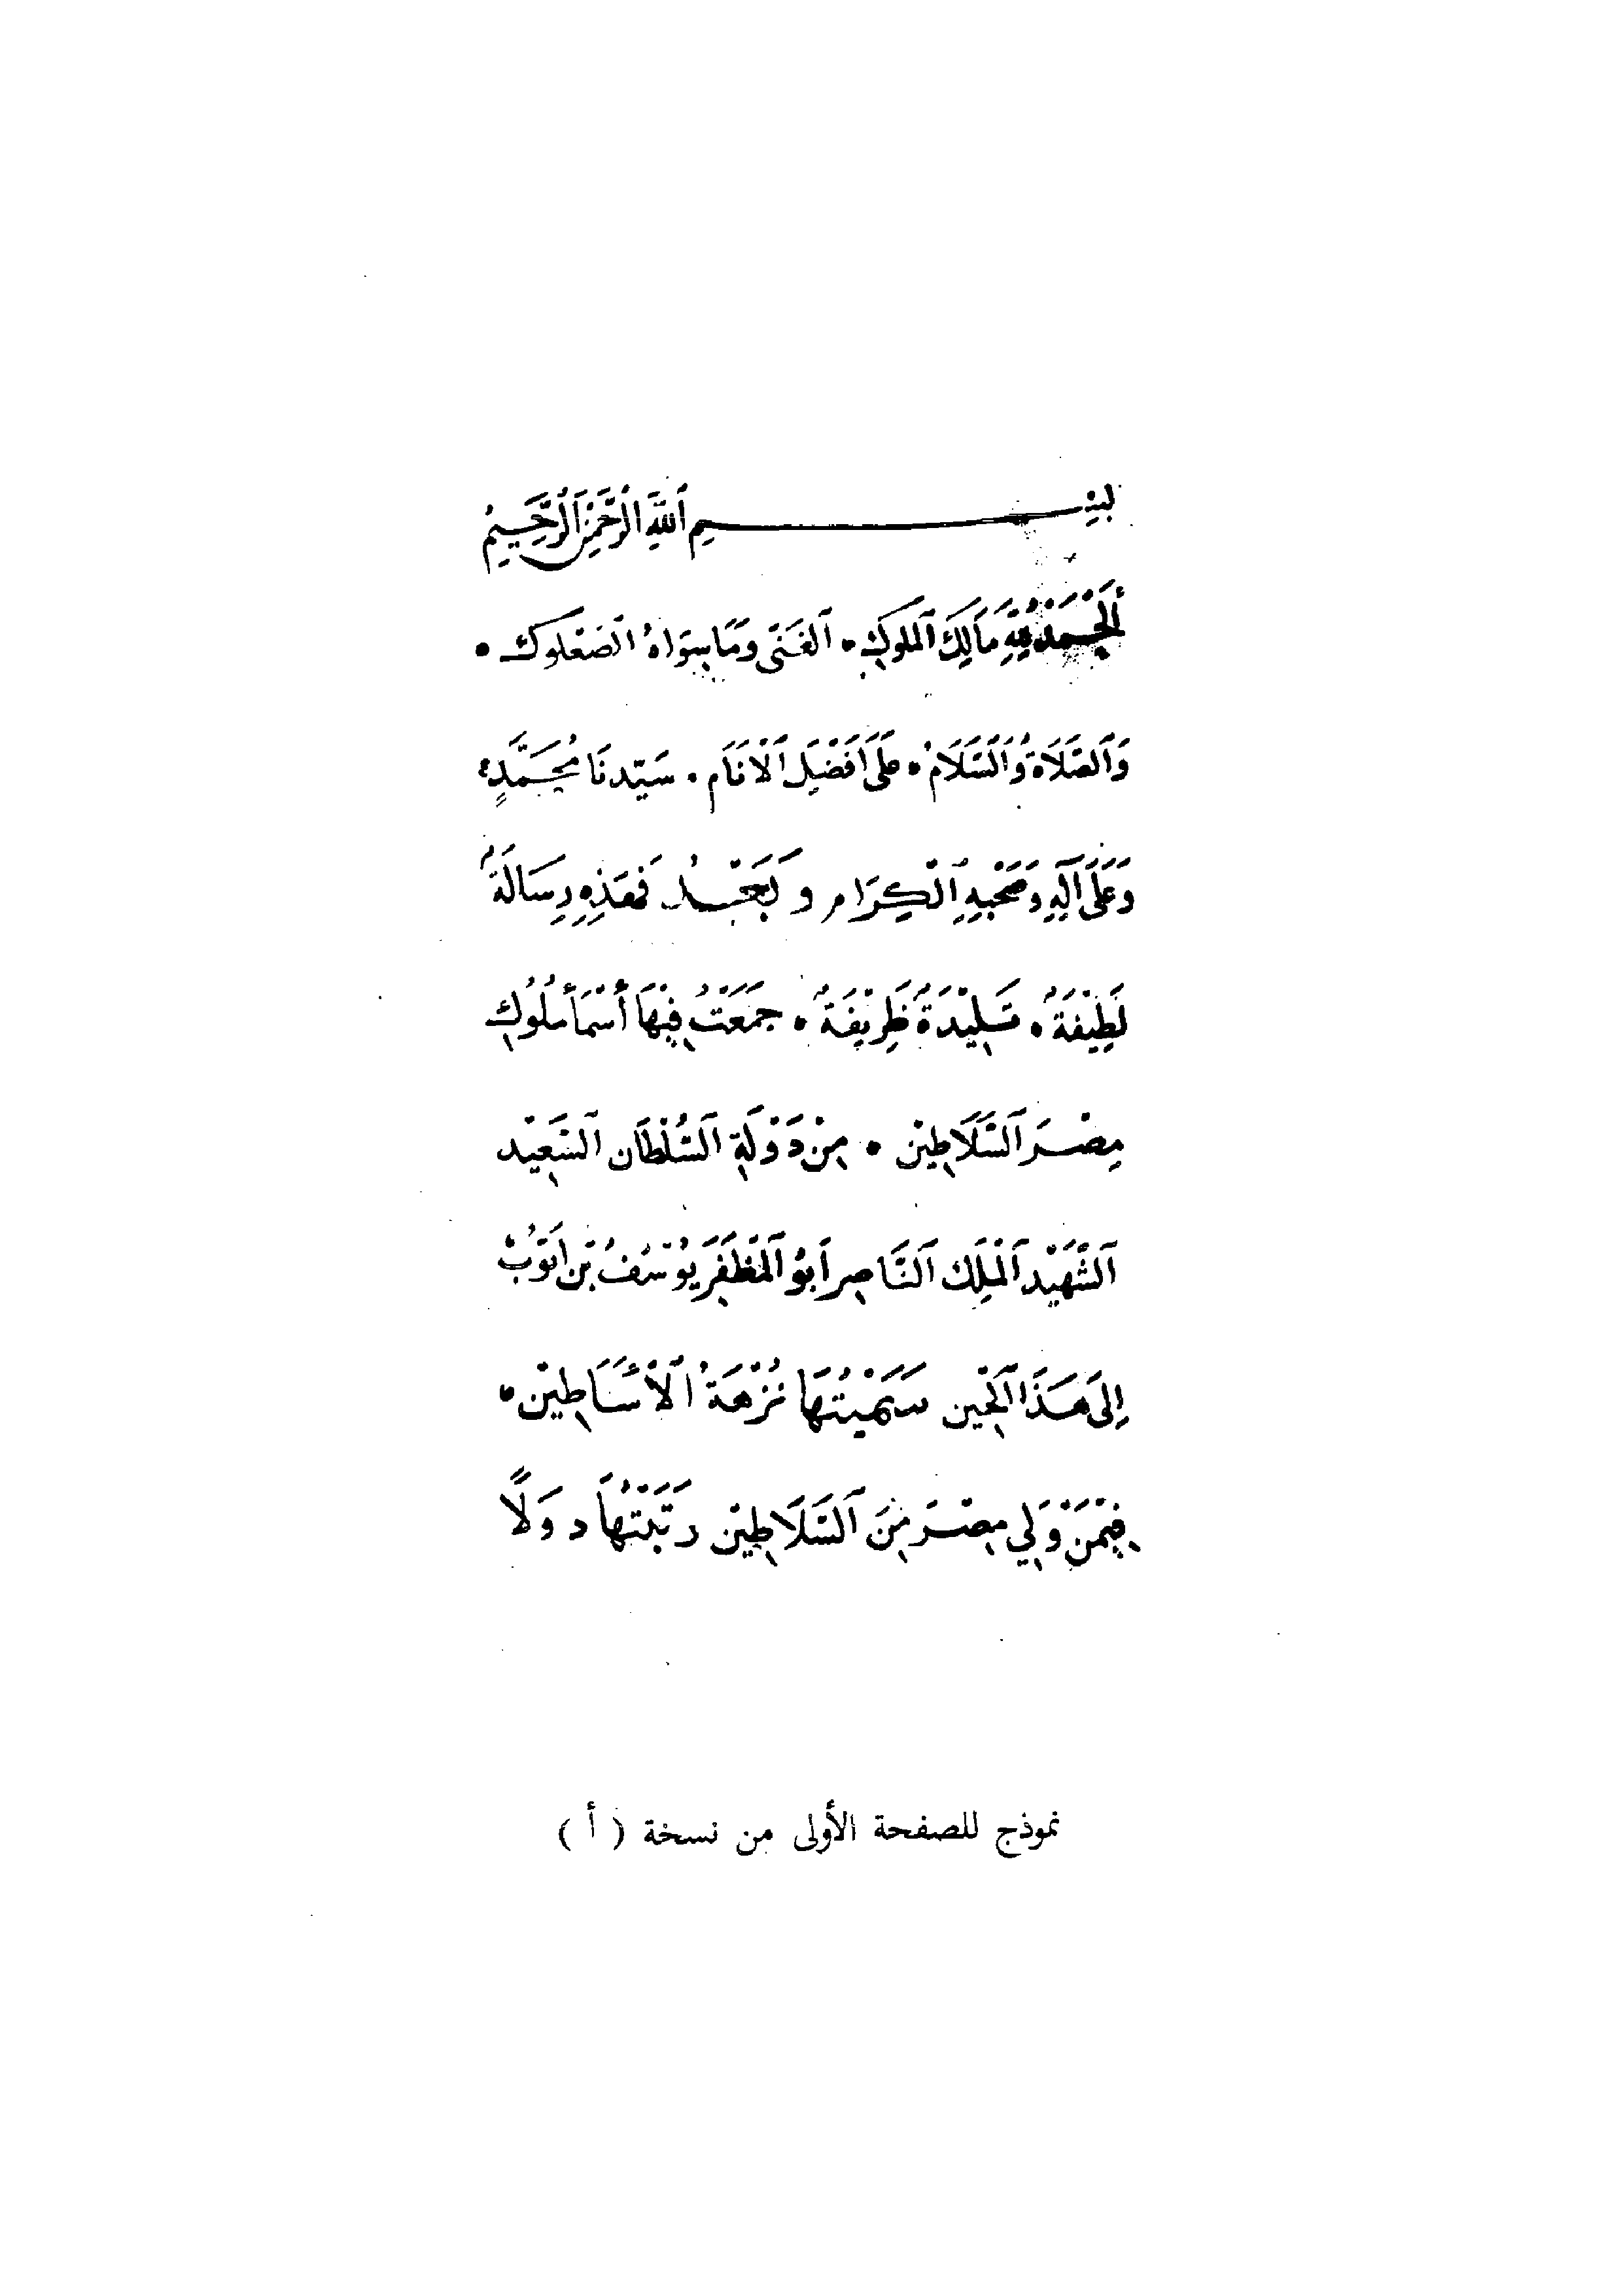 بِسْمِ ٱللَّهِ ٱلرَّحْمَنِ ٱلرَّحِيمِ
أَلْحَمْدُ لِلَّهِ مَالِكَ ٱلْمُلُوكِ • ٱلْغَنَى وَمَا سِوَاهُ ٱلصَّعْلُوكَ •
وَٱلصَّلَاةُ وَٱلسَّلَامُ • عَلَى أَفْضَلِ ٱلْأَنَام • سَيِّدنَا مُحَمَّدٍ
وَعَلَى آلِهِ وَصَحْبِهِ ٱلْكِرَام وَبَعْدُ فَهَذِهِ رِسَالَةٌ
لَطِيْفَةٌ • تَلِيْدَةٌ ظَرِيْفَةٌ • جَمَعْتُ فِيْهَا أَسْمَأ مُلُوكِ
مِصْرَ ٱلسَّلَاطِيْن • مِنْ دَوْلَةِ ٱلسُّلْطَان ٱلسَّعِيْد
ٱلشَّهِيْد ٱلْمَلِك ٱلنَّاصِر أَبُو ٱلْمُظَفَّر يُوْسُفُ بْن أَيُّوْبْ
إِلَى هَذَا ٱلْحِيْن سَمَّيْتُهَا نُزْهَةُ ٱلْأَسَاطِيْن •
فِيْمَنْ وَلِي مِصْرَ مِنَ ٱلسَّلَاطِيْن رَتَّبْتُهَا دِوَلًا
نموذج للصفحة الأولى من نسخة ( أ )